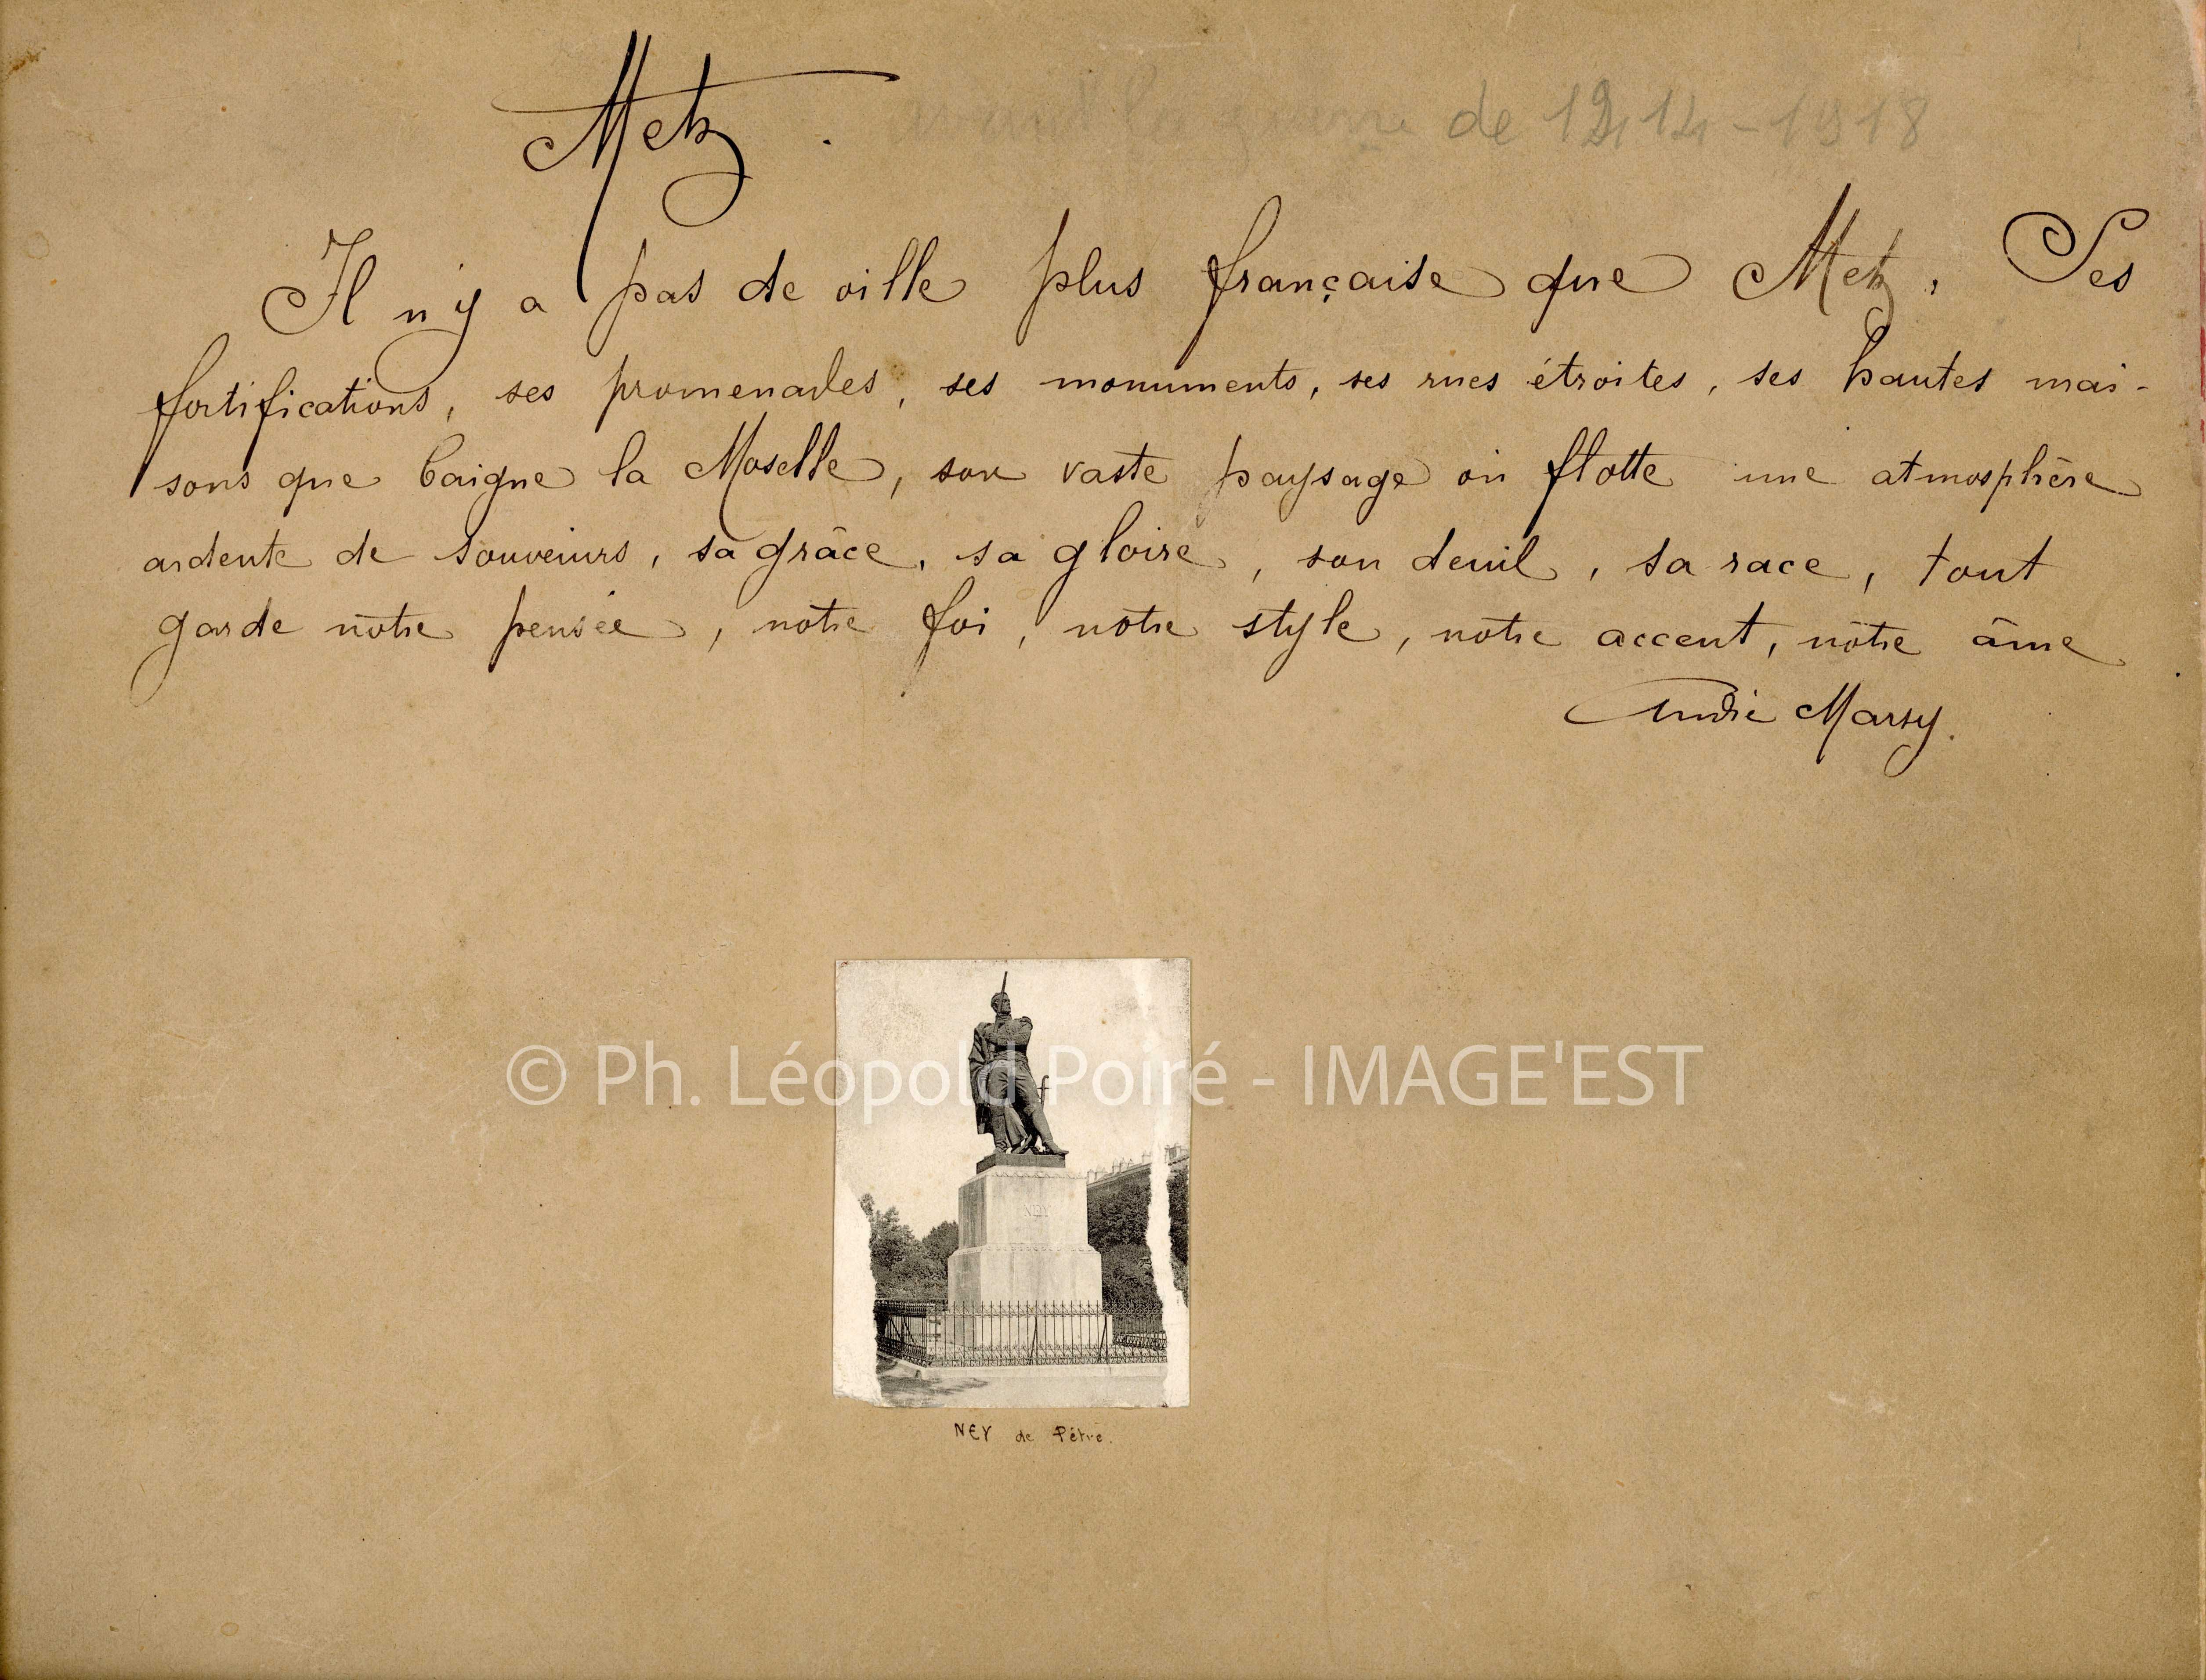 Metz. avant la guerre de 1914-1918
Il n'y a pas de ville plus française que Metz. Ses
fortifications, ses promenades, ses monuments, ses rues étroites, ses hautes mai-
sons que baigne la Moselle, son vaste paysage où flotte une atmosphère
ardente de souvenirs, sa grâce, sa gloire, son deuil, sa race, tout
garde notre pensée, notre foi, notre style, notre accent, notre âme
André Marsy.
© Ph. Léopold Poiré - IMAGE'EST
NEY
NEY de Pêtre.